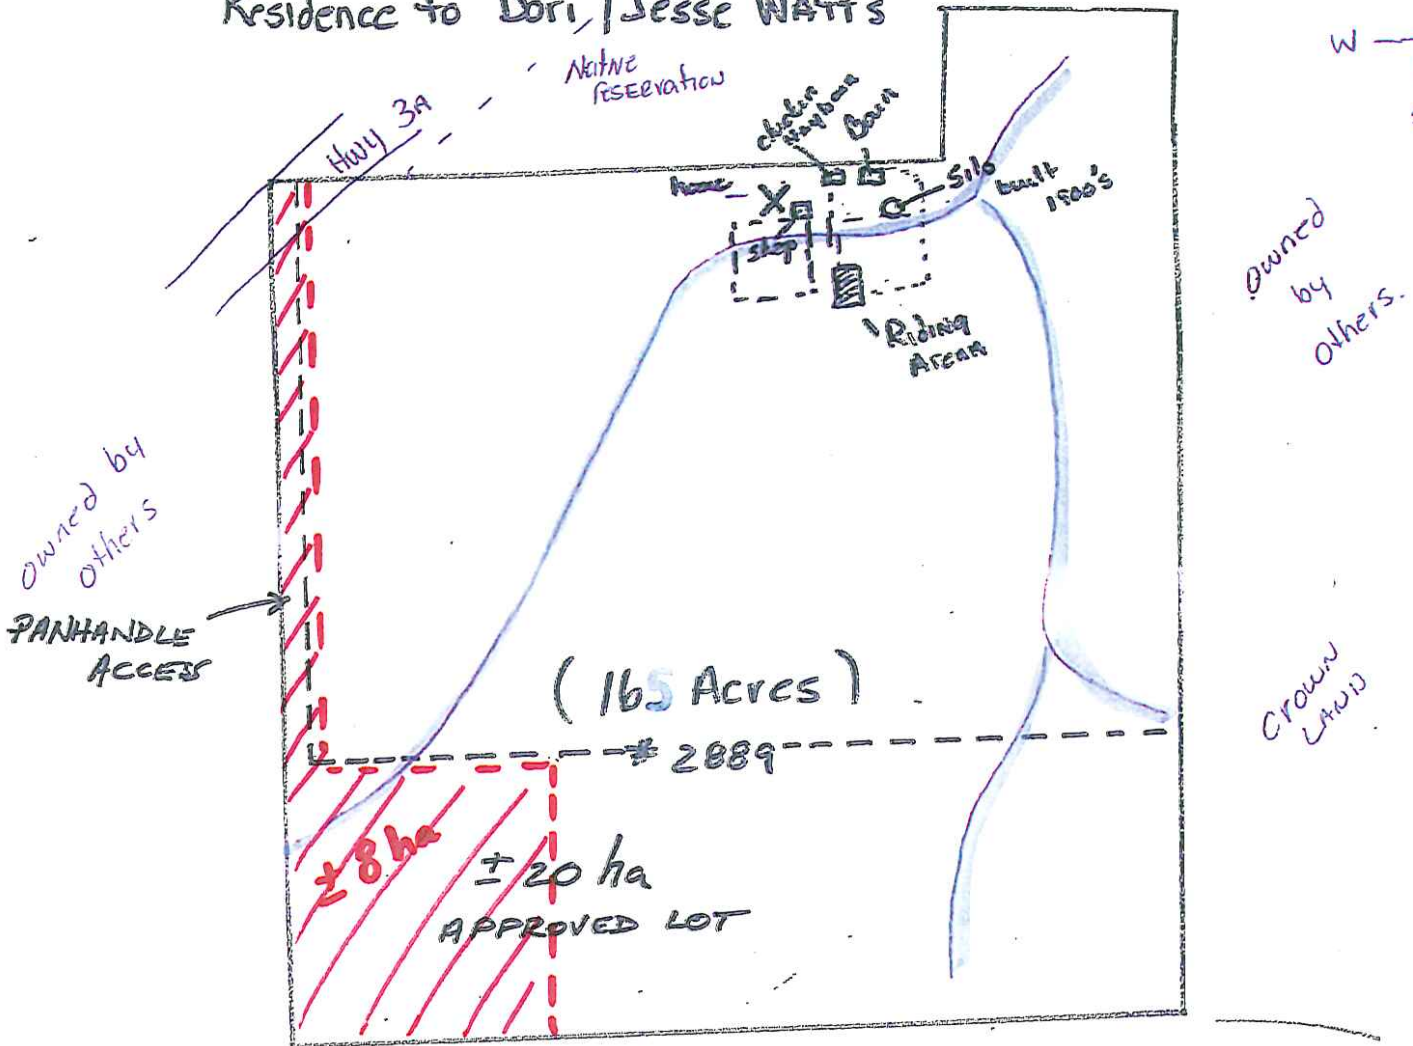 Residence to Dori / Jesse WATTS
W
Native
reservation
Hwy 3A
Barn
home
X
Silo
built
1900's
shop
Riding
Arena
Owned
by
Others.
Owned by
Others
PANHANDLE
ACCESS
(165 Acres)
* 2889
Crown
LAND
± 8 ha
± 20 ha
APPROVED LOT